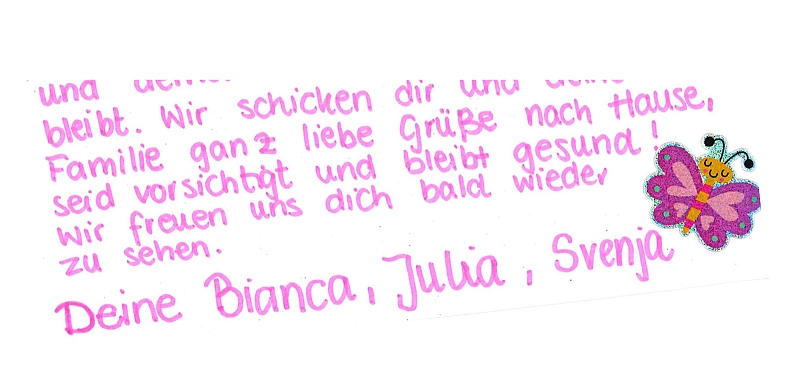 und
bleibt. Wir schicken dir und deine
Familie ganz liebe Grüße nach Hause,
seid vorsichtigt und bleibt gesund!
Wir freuen uns dich bald wieder
zu sehen.
Deine Bianca, Julia, Svenja